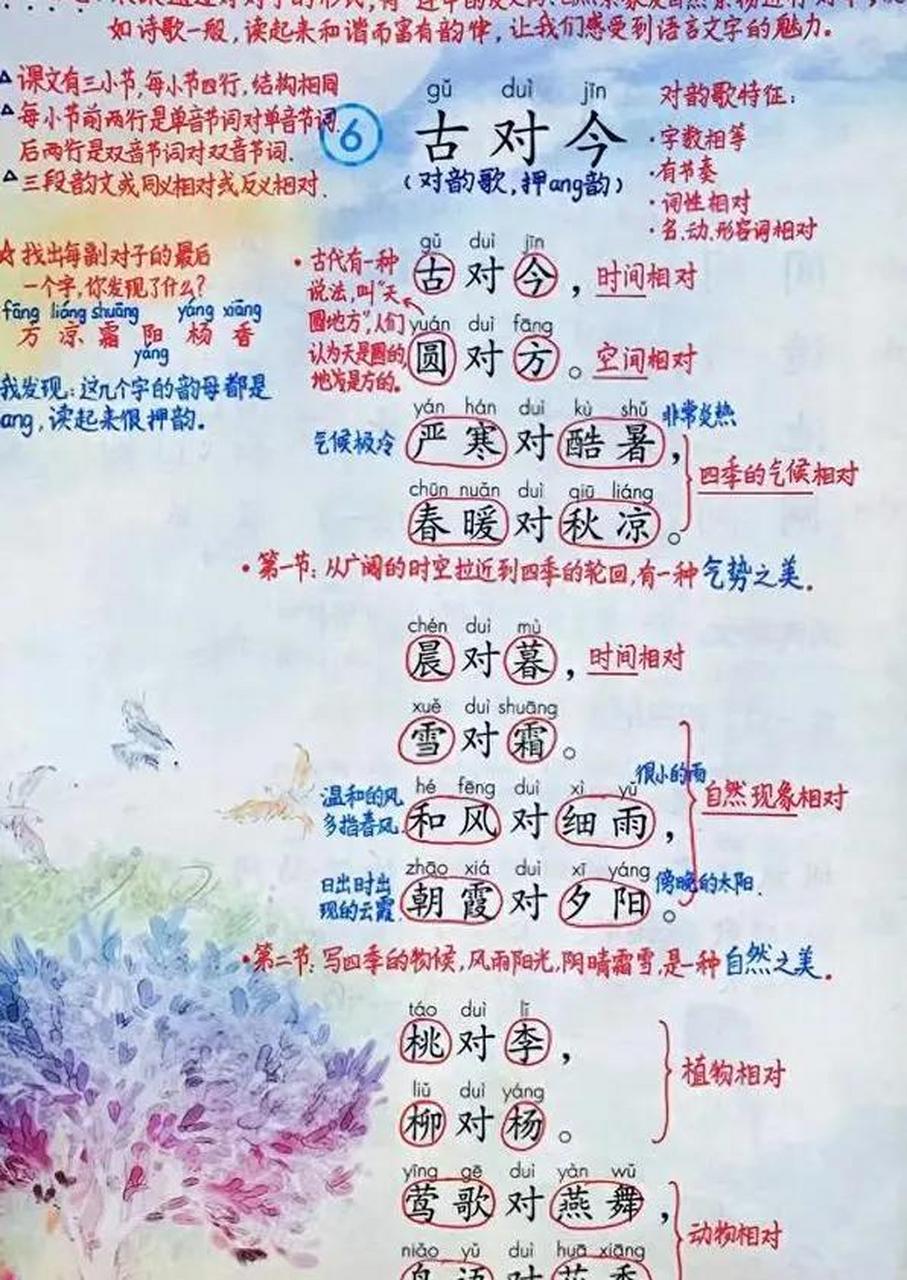 如诗歌一般,读起来和谐而富有韵律,让我们感受到语言文字的魅力。
△课文有三小节,每小节四行,结构相同
△每小节前两行是单音节词对单音节词.
后两行是双音节词对双音节词.
△三段韵文或同义相对或反义相对.
6
gǔ duì jīn
古对今
(对韵歌,押ang韵)
对韵歌特征:
·字数相等
·有节奏
·词性相对
·名、动、形容词相对
☆找出每副对子的最后
一个字,你发现了什么?
fāng liáng shuāng yáng xiāng
方 凉 霜 阳 杨 香
yáng
我发现:这几个字的韵母都是
ang,读起来很押韵。
·古代有一种
说法,叫“天
圆地方”,人们
认为天是圆的,
地是方的。
gǔ duì jīn
古对今,时间相对
yuán duì fāng
圆对方。空间相对
yán hán duì kù shǔ 非常炎热
气候极冷 严寒对酷暑,
四季的气候相对
chūn nuǎn duì qiū liáng
春暖对秋凉。
·第一节:从广阔的时空拉近到四季的轮回,有一种气势之美.
chén duì mù
晨对暮,时间相对
xuě duì shuāng
雪对霜。
很小的雨
hé fēng duì xì yǔ
温和的风
多指春风.
和风对细雨,
自然现象相对
zhāo xiá duì xī yáng
日出时出
现的云霞.
朝霞对夕阳。
傍晚的太阳.
·第二节:写四季的物候,风雨阳光,阴晴霜雪,是一种自然之美.
táo duì lǐ
桃对李,
植物相对
liǔ duì yáng
柳对杨。
yīng gē duì yàn wǔ
莺歌对燕舞,
动物相对
niǎo yǔ duì huā xiāng
鸟语对花香